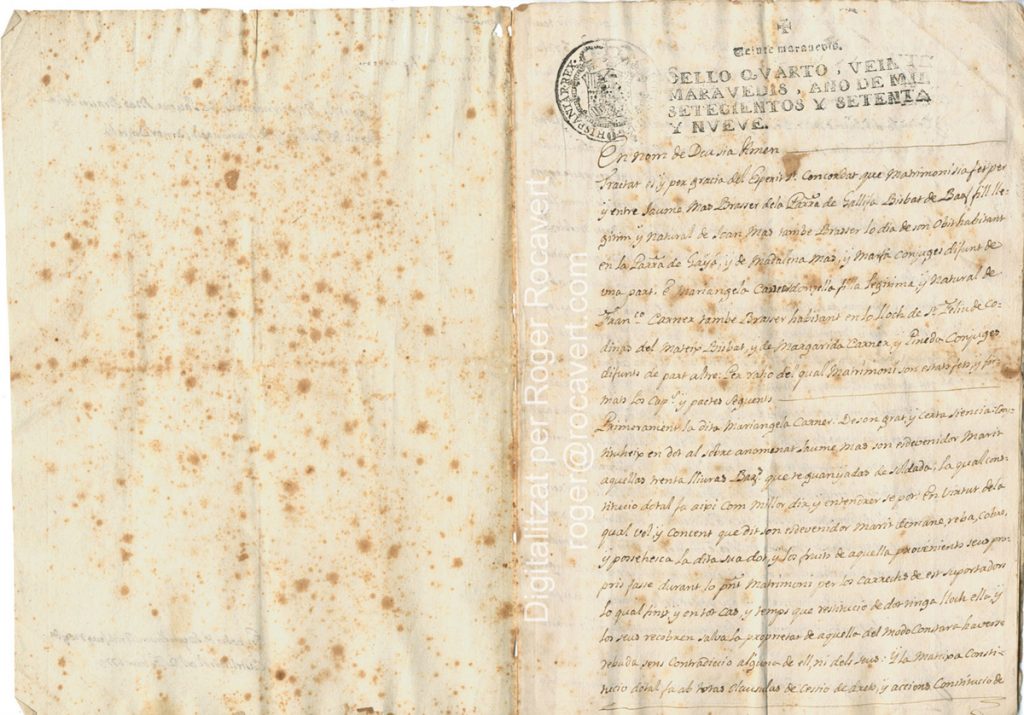 HISPANIARREX
Veinte marauedis.
SELLO QVARTO, VEINTE
MARAVEDIS, AÑO DE MIL
SETECIENTOS Y SETENTA
Y NVEVE.
En nom de Deu sia Amen
Tractat es, y per gracia del Esperit St. Concordat que Matrimoni sia fet per
y entre Jaume Mas Brasser de la Parra. de Gallifa Bisbat de Bara. fill lle-
gitim y Natural de Joan Mas tambe Brasser lo dia de son Obit habitant
en la Parra. de y de Madalena Mas, y Marfá Conjuges difunts de
una part. E Mariangela Carner donzella filla llegitima, y Natural de
Franco. Carner tambe Brasser habitant en lo lloch de St. Feliu de Co-
dinas del Mateix Bisbat, y de Margarida Carner, y Pineda Conjuges
difunts de part altre: Per raho del qual Matrimoni son estats fets, y fir-
mats los Capls. y pactes seguents
Primerament la dita Mariangela Carner: De son grat, y certa siencia: Con-
stitueix en dot al sobre anomenat Jaume Mas son esdevenidor Marit
aquellas trenta lliuras Bars. que te guanyadas de soldada; La qual cons-
titucio dotal fa aixi com Millor dir, y entendrer se pot: En virtut de la
qual vol, y concent que dit son esdevenidor Marit demane, reba, cobre,
y possehesca la dita sua dot, y los fruits de aquella provenints seus pro-
pris fasse durant lo pnt. Matrimoni per los carrechs de est suportador
lo qual finit, y en tot cas, y temps que restitucio de dot tinga lloch ella y
los seus recobren salva la proprietat de aquella del Modo Constará haverse
rebuda sens Contradicio alguna de ell, ni dels seus: Y la Mateixa Consti-
tucio dotal fa ab totas Clausulas de Cessio de drets, y accions Constitucio de
Digitalitzat per Roger Rocavert
roger@rocavert.com